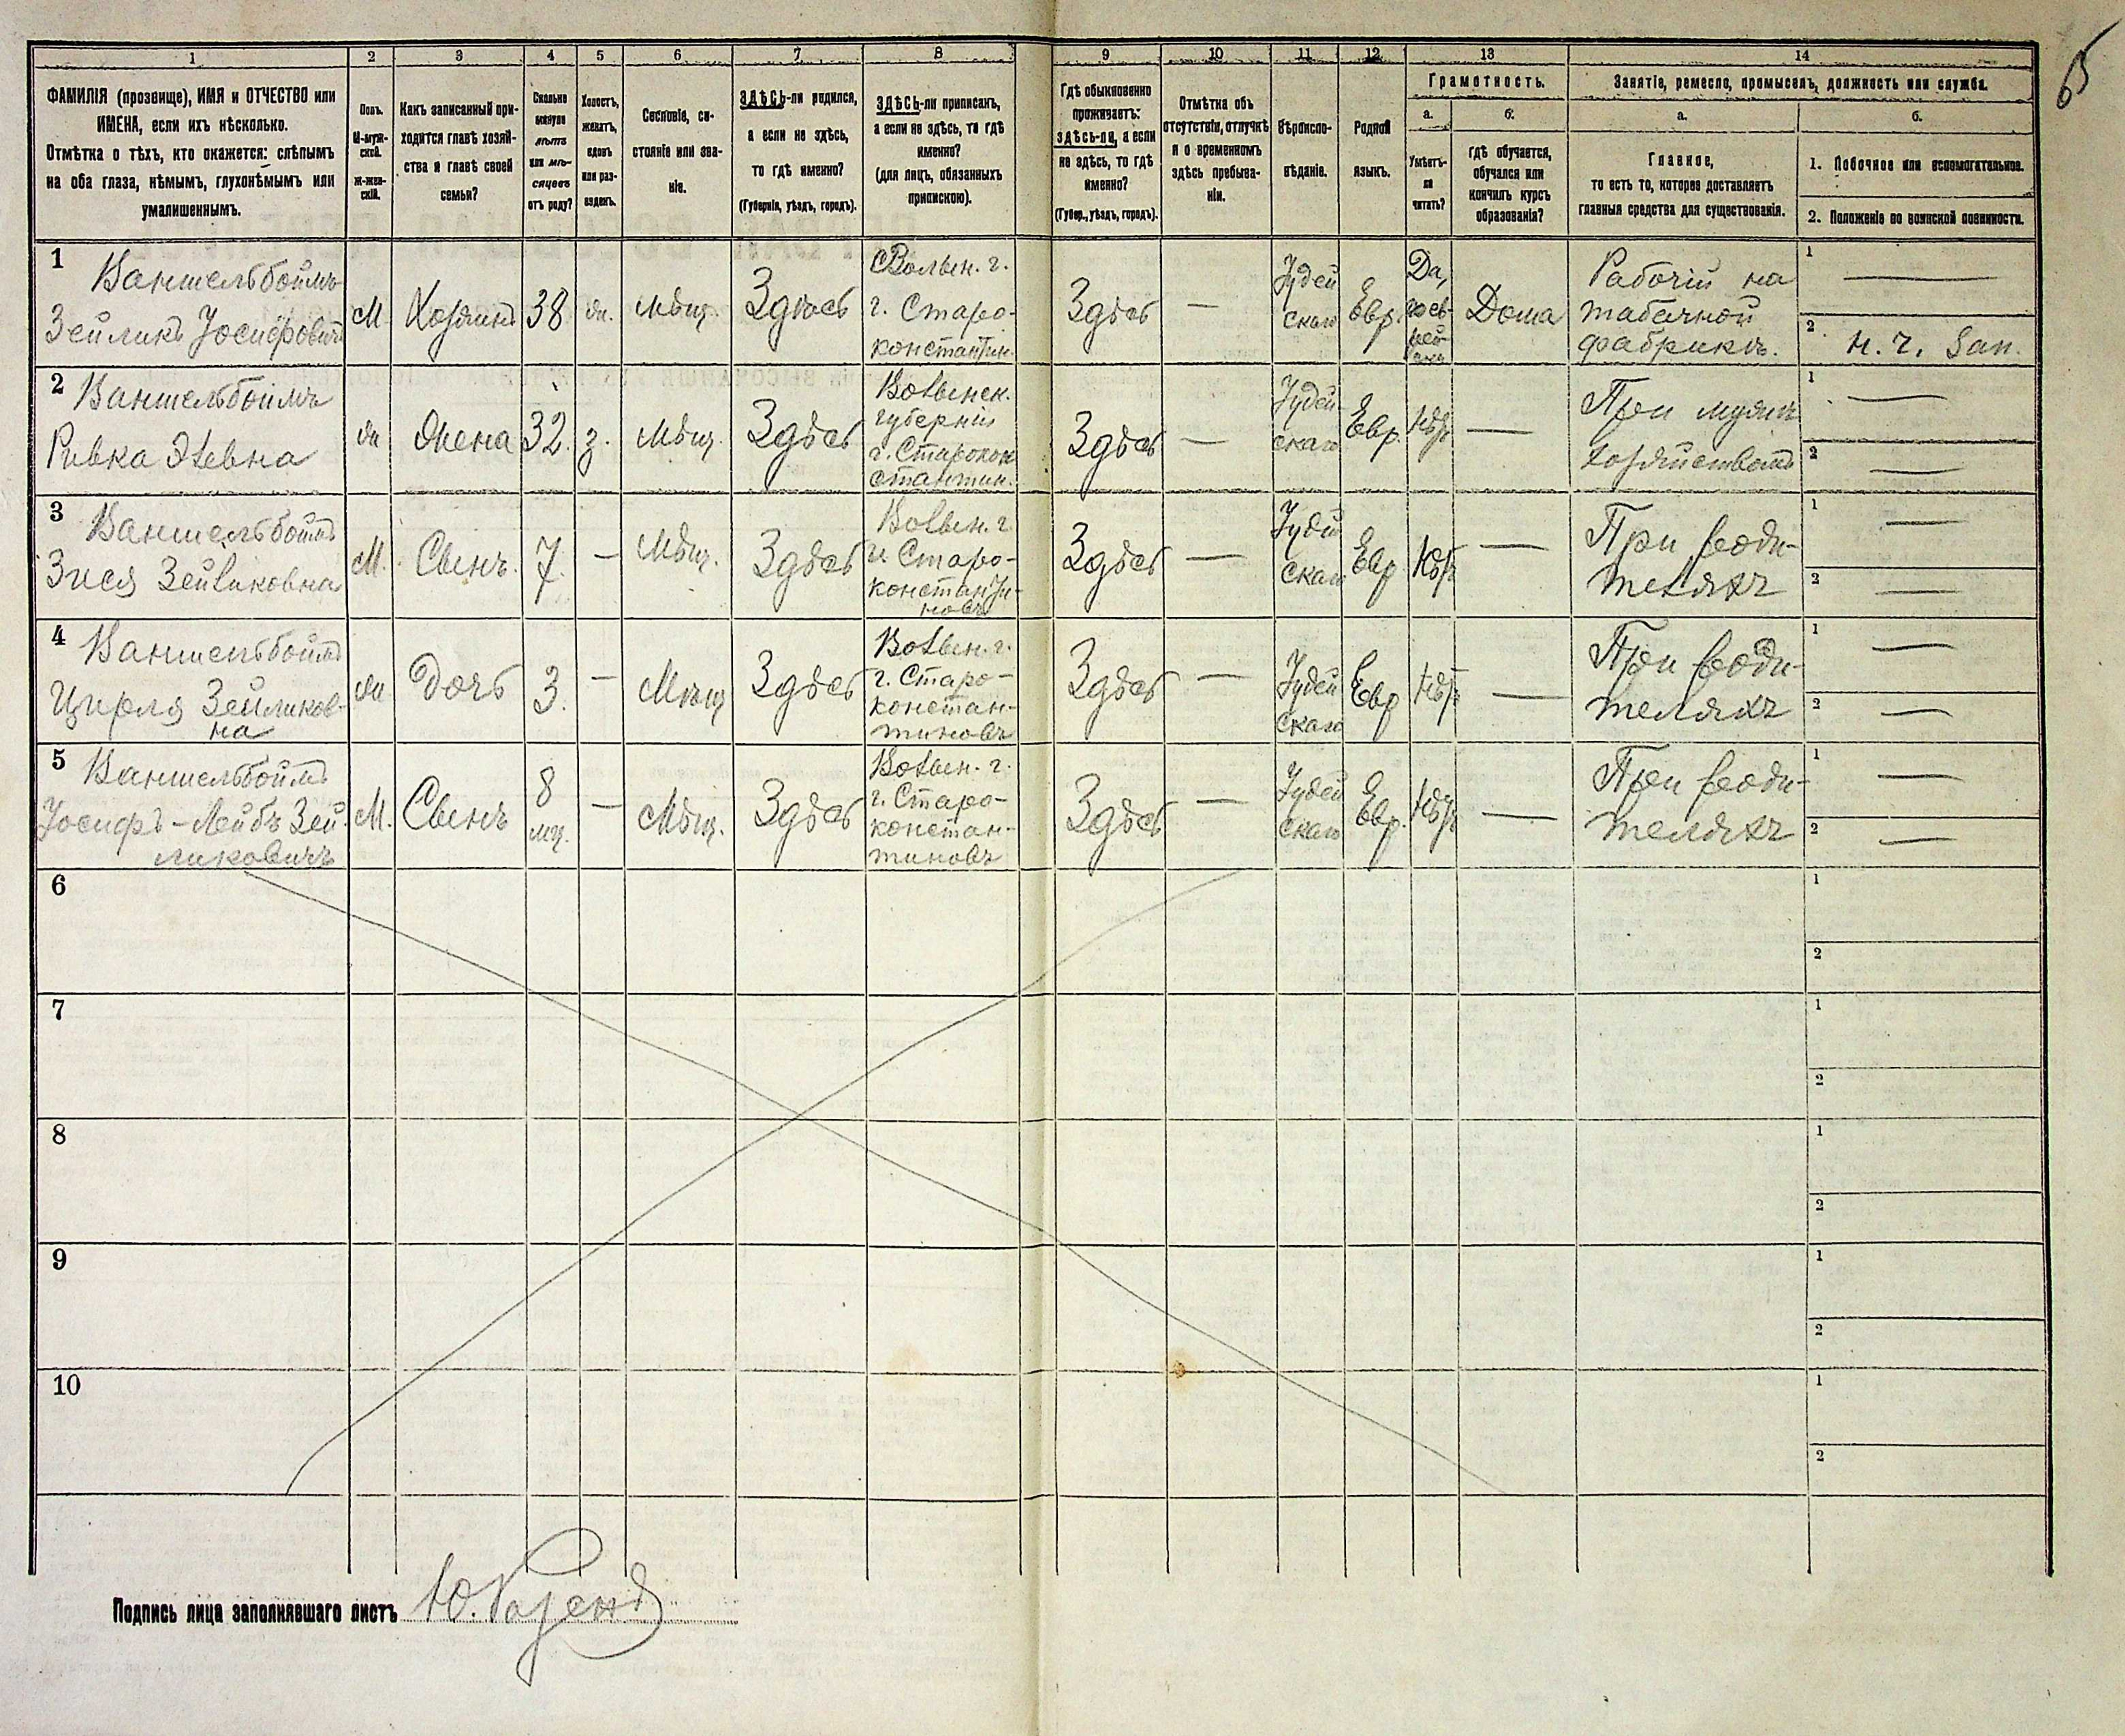 65
1 2 3 4 5 6 7 8 9 10 11 12 13 14
ФАМИЛІЯ (прозвище), ИМЯ и ОТЧЕСТВО или
ИМЕНА, если ихъ нѣсколько.
Отмѣтка о тѣхъ, кто окажется: слѣпымъ
на оба глаза, нѣмымъ, глухонѣмымъ или
умалишеннымъ.
Полъ.
М-муж-
ской.
Ж-жен-
скій.
Какъ записанный при-
ходится главѣ хозяй-
ства и главѣ своей
семьи?
Сколько
минуло
лѣтъ
или мѣ-
сяцевъ
отъ роду?
Холостъ,
женатъ,
вдовъ
или раз-
веденъ.
Сословіе, со-
стояніе или зва-
ніе.
ЗДѢСЬ-ли родился,
а если не здѣсь,
то гдѣ именно?
(Губернія, уѣздъ, городъ).
ЗДѢСЬ-ли приписанъ,
а если не здѣсь, то гдѣ
именно?
(для лицъ, обязанныхъ
припискою).
Гдѣ обыкновенно
проживаетъ:
здѣсь-ли, а если
не здѣсь, то гдѣ
именно?
(Губер., уѣздъ, городъ).
Отмѣтка объ
отсутствіи, отлучкѣ
и о временномъ
здѣсь пребыва-
ніи.
Вѣроиспо-
вѣданіе.
Родной
языкъ.
Грамотность.
а.
Умѣетъ-
ли
читать?
б.
Гдѣ обучается,
обучался или
кончилъ курсъ
образованія?
Занятіе, ремесло, промыселъ, должность или служба.
а.
Главное,
то есть то, которое доставляетъ
главныя средства для существованія.
б.
1. Побочное или вспомогательное.
2. Положеніе по воинской повинности.
1
Ваншельбоймъ
Зейликъ Іосифовичъ
М
Хозяинъ
38
ж.
Мѣщ.
Здѣсь
Волын. г.
г. Старо-
константин.
Здѣсь
—
Іудей
скаго
Евр.
Да,
Дома
Рабочій на
табачной
фабрикѣ.
1 —
2
2
Ваншельбоймъ
Ривка Элевна
ж
Жена
32.
з.
Мѣщ.
Здѣсь
Волынск.
губерніи
г. Старокон
стантин.
Здѣсь
—
Іудей-
скаго
Евр.
Нѣтъ
—
При мужѣ
хозяйствомъ
1 —
2 —
3
Ваншельбоймъ
Зися Зейликовна
М.
Сынъ.
7.
—
Мѣщ.
Здѣсь
Волын. г.
г. Старо-
константи-
новъ
Здѣсь
—
Іудей
скаго
Евр
Нѣтъ
—
При роди-
теляхъ
1 —
2 —
4
Ваншельбоймъ
Цирля Зейликов-
на
ж
Дочь
3.
—
Мѣщ
Здѣсь
Волын. г.
г. Старо-
констан-
тиновъ
Здѣсь
—
Іудей
скаго
Евр
Нѣтъ
—
При роди-
теляхъ
1 —
2 —
5
Ваншельбоймъ
Іосифъ-Лейбъ Зей-
ликовичъ
М.
Сынъ
8
мц.
—
Мѣщ.
Здѣсь
Волын. г.
г. Старо-
констан-
тиновъ
Здѣсь
—
Іудей
скаго
Евр.
Нѣтъ
—
При роди-
теляхъ
1 —
2 —
6
1
2
7
1
2
8
1
2
9
1
2
10
1
2
Подпись лица заполнявшаго листъ